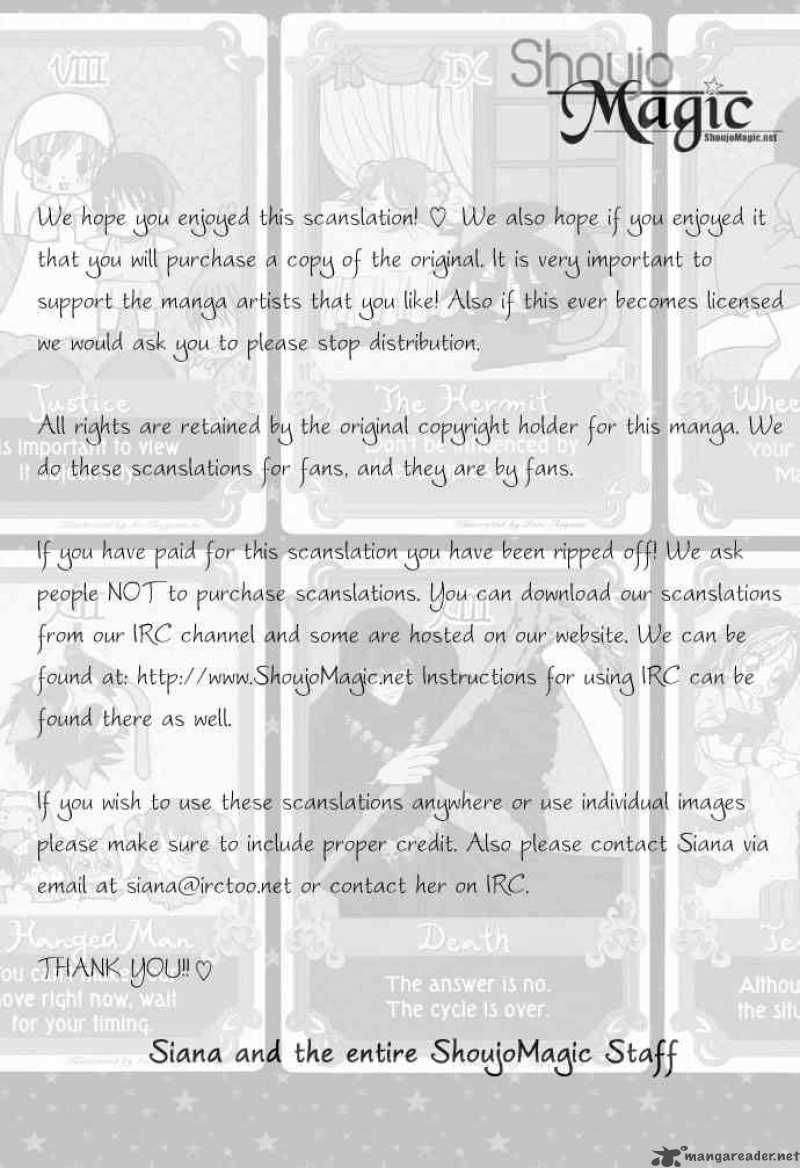 Shoujo
Magic
ShoujoMagic.net
VIII
IX
We hope you enjoyed this scanslation! ♡ We also hope if you enjoyed it
that you will purchase a copy of the original. It is very important to
support the manga artists that you like! Also if this ever becomes licensed
we would ask you to please stop distribution.
Justice
The Hermit
Whee
All rights are retained by the original copyright holder for this manga. We
is important to view
Don't be influenced by
Your
do these scanslations for fans, and they are by fans.
it
Ma
If you have paid for this scanslation you have been ripped off! We ask
people NOT to purchase scanslations. You can download our scanslations
XIII
from our IRC channel and some are hosted on our website. We can be
found at: http://www.ShoujoMagic.net Instructions for using IRC can be
found there as well.
If you wish to use these scanslations anywhere or use individual images
please make sure to include proper credit. Also please contact Siana via
email at siana@irctoo.net or contact her on IRC.
Hanged Man
Death
Te
THANK YOU!! ♡
ove right now, wait
for your timing.
The answer is no.
The cycle is over.
Althou
the situ
Siana and the entire ShoujoMagic Staff
mangareader.net